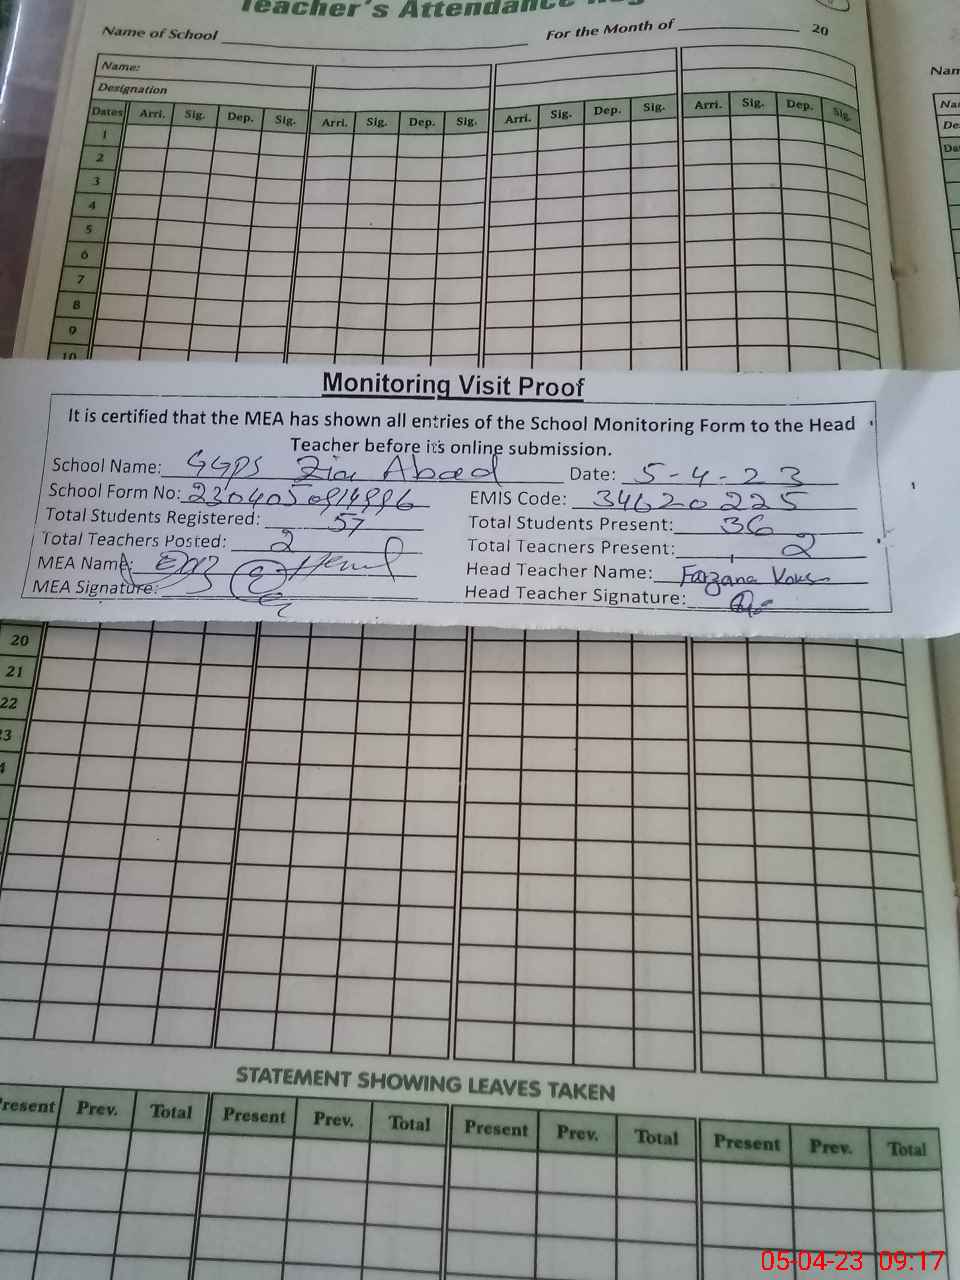 Teacher's Attendance Reg
Name of School For the Month of 20
Nam
Name:
Designation
Dates Arri. Sig. Dep. Sig. Arri. Sig. Dep. Sig. Arri. Sig. Dep. Sig. Arri. Sig. Dep. Sig.
Na
De
Dat
1
2
3
4
5
6
7
8
9
10
Monitoring Visit Proof
It is certified that the MEA has shown all entries of the School Monitoring Form to the Head
Teacher before its online submission.
School Name: GGPS Zia Abad Date: 5-4-23
School Form No: EMIS Code: 34620225
Total Students Registered: 57 Total Students Present: 36
Total Teachers Posted: 2 Total Teachers Present: 2
MEA Name: Head Teacher Name: Farzana
MEA Signature: Head Teacher Signature:
20
21
22
23
4
STATEMENT SHOWING LEAVES TAKEN
Present Prev. Total Present Prev. Total Present Prev. Total Present Prev. Total
05-04-23 09:17